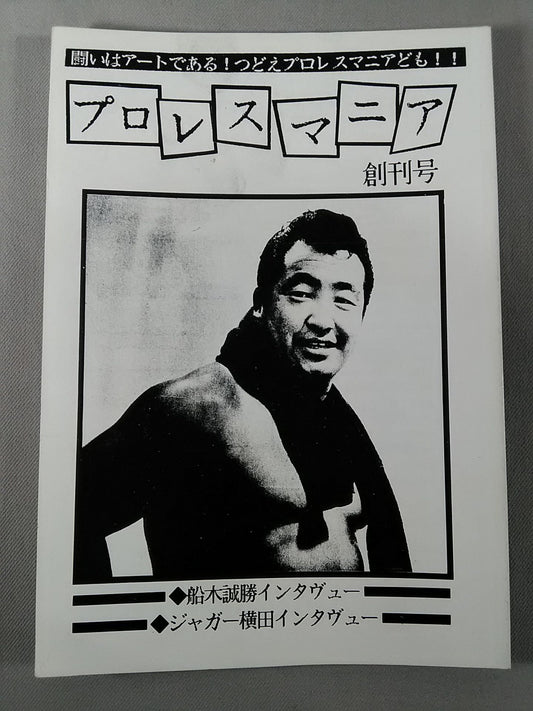 闘いはアートである！つどえプロレスマニアども！！
プロレスマニア
創刊号
◆船木誠勝インタヴュー
◆ジャガー横田インタヴュー